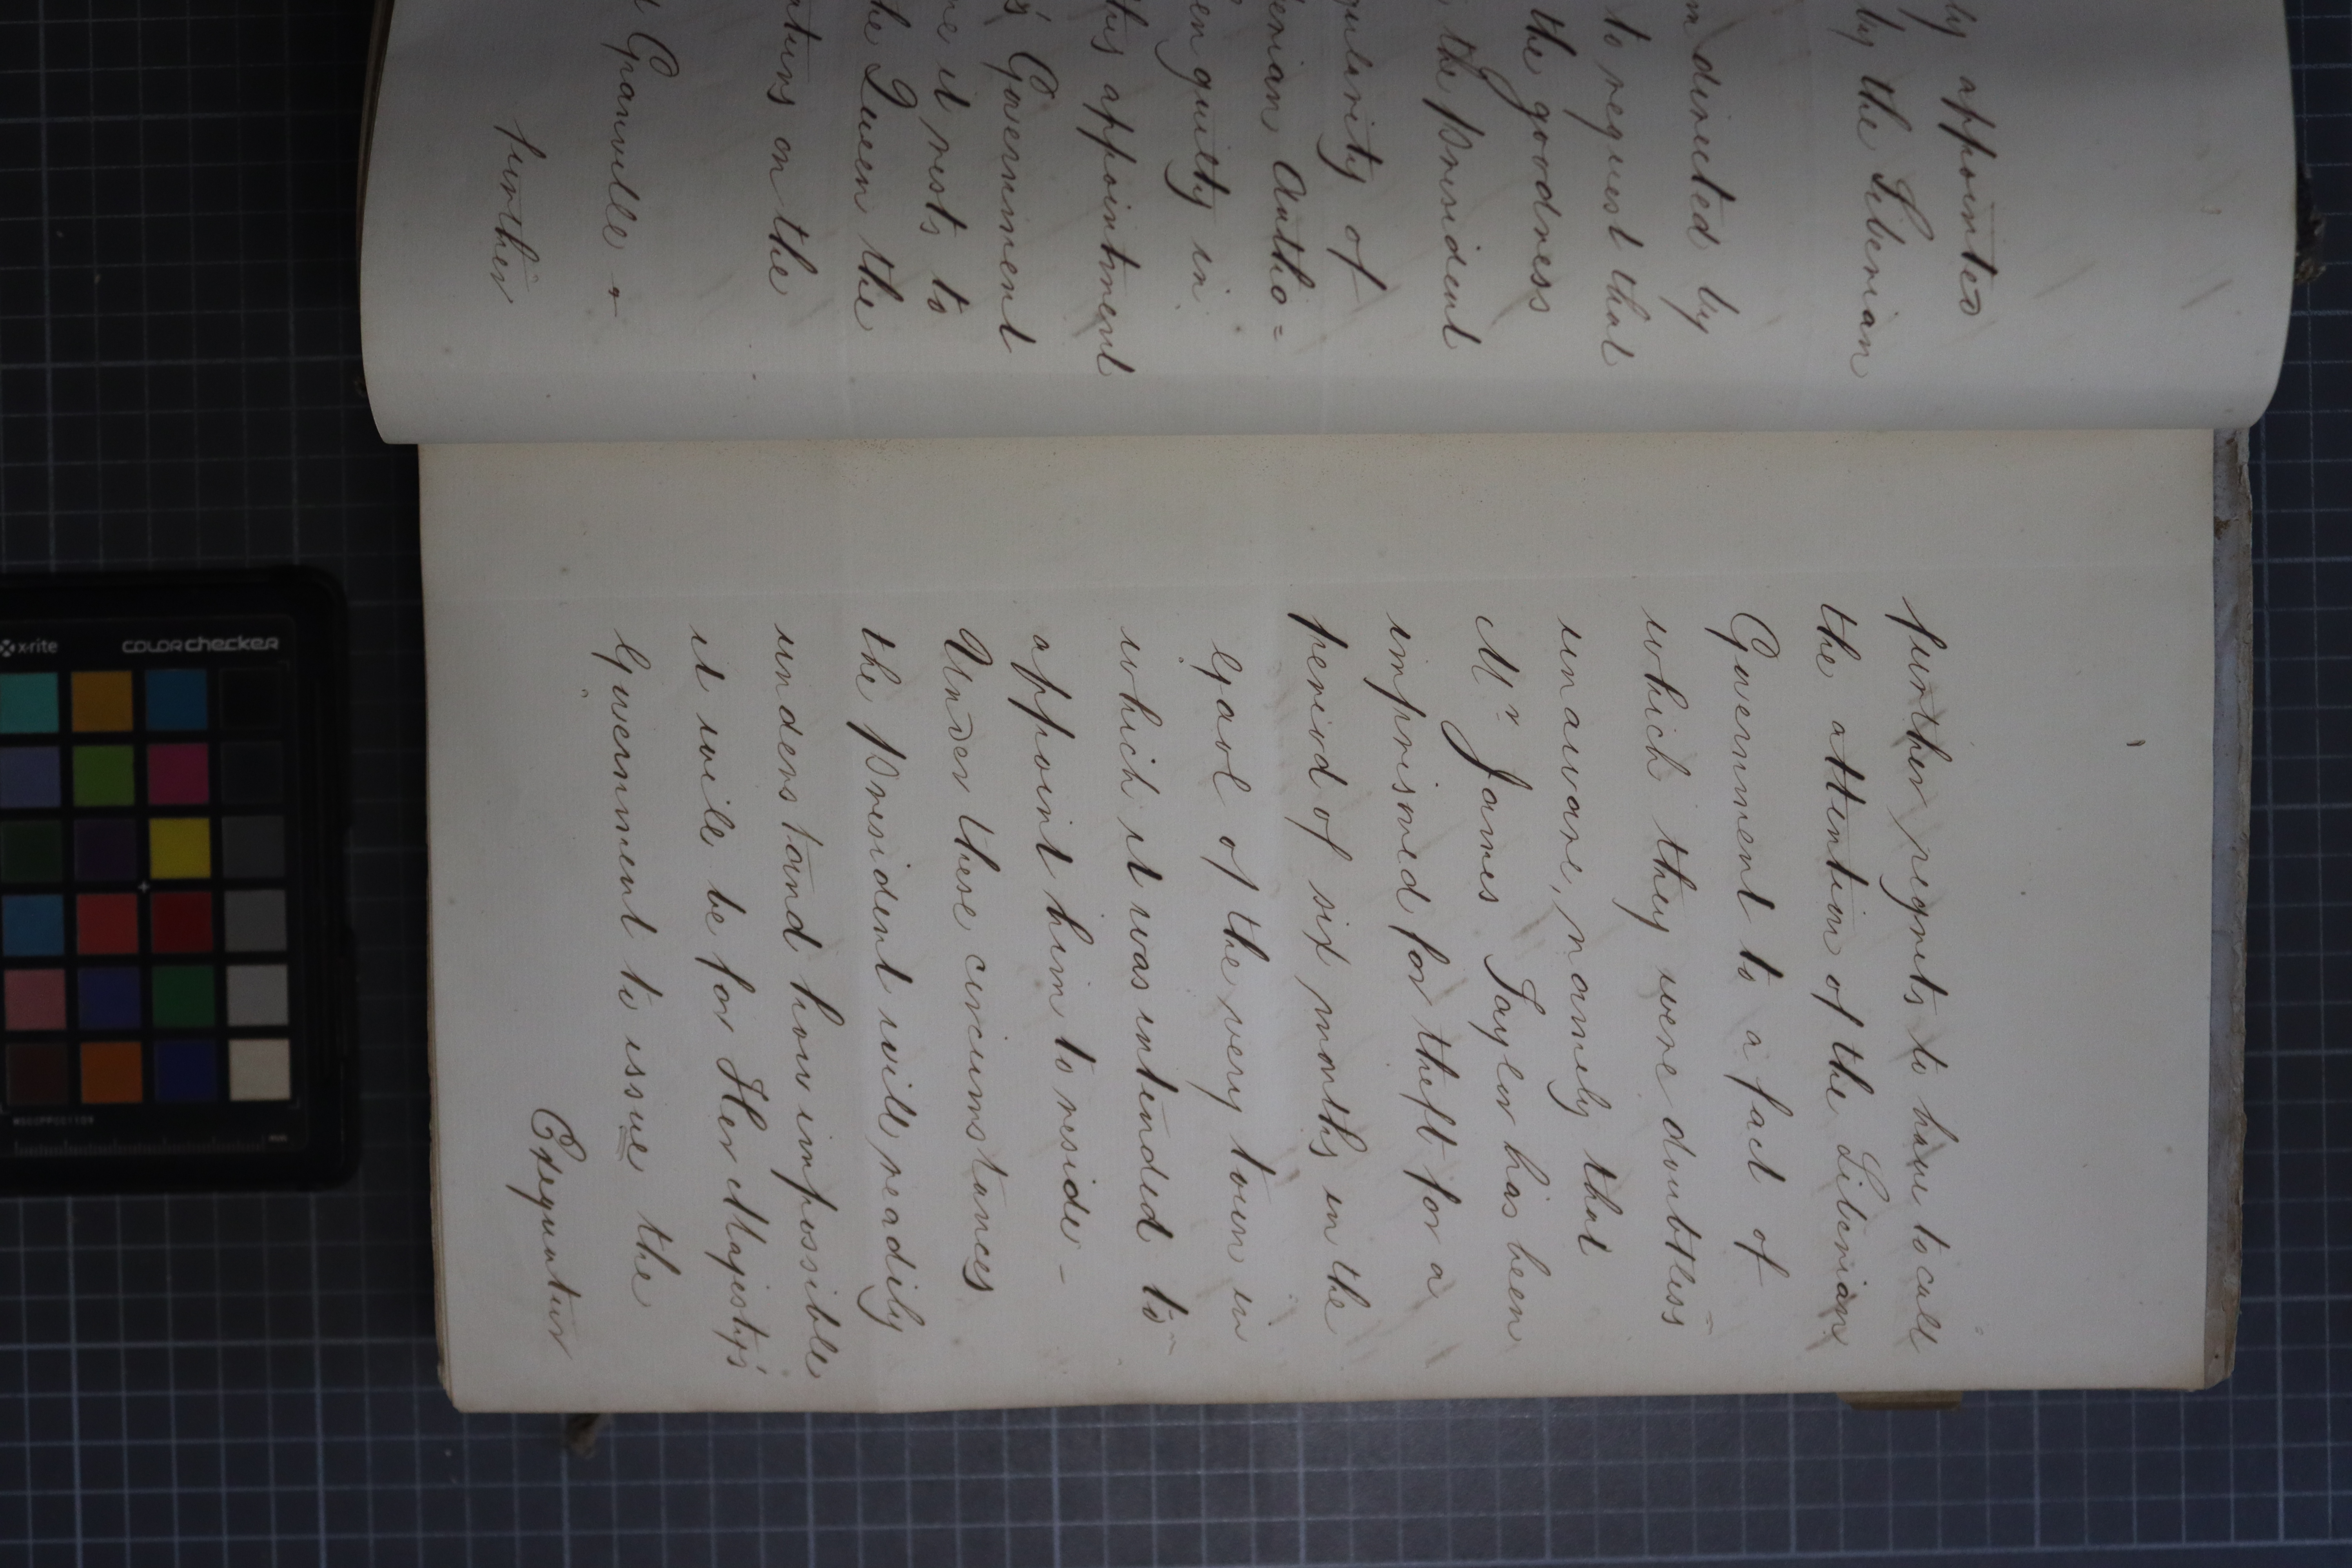 ly appointed
by the Liberian
m directed by
to request that
the goodness
the President
gularity of
erian Autho=
en guilty in
this appointment
s' Government
me it rests to
he Queen the
atures on the
Granville &
further
further regrets to have to call
the attention of the Liberian
Government to a fact of
which they were doubtless
unaware, namely that
Mr James Taylor has been
imprisoned for theft for a
period of six months in the
Gaol of the very town in
which it was intended to
appoint him to reside -
Under these circumstances
the President will readily
understand how impossible
it will be for Her Majesty's
Government to issue the
Exequatur
x-rite colorchecker